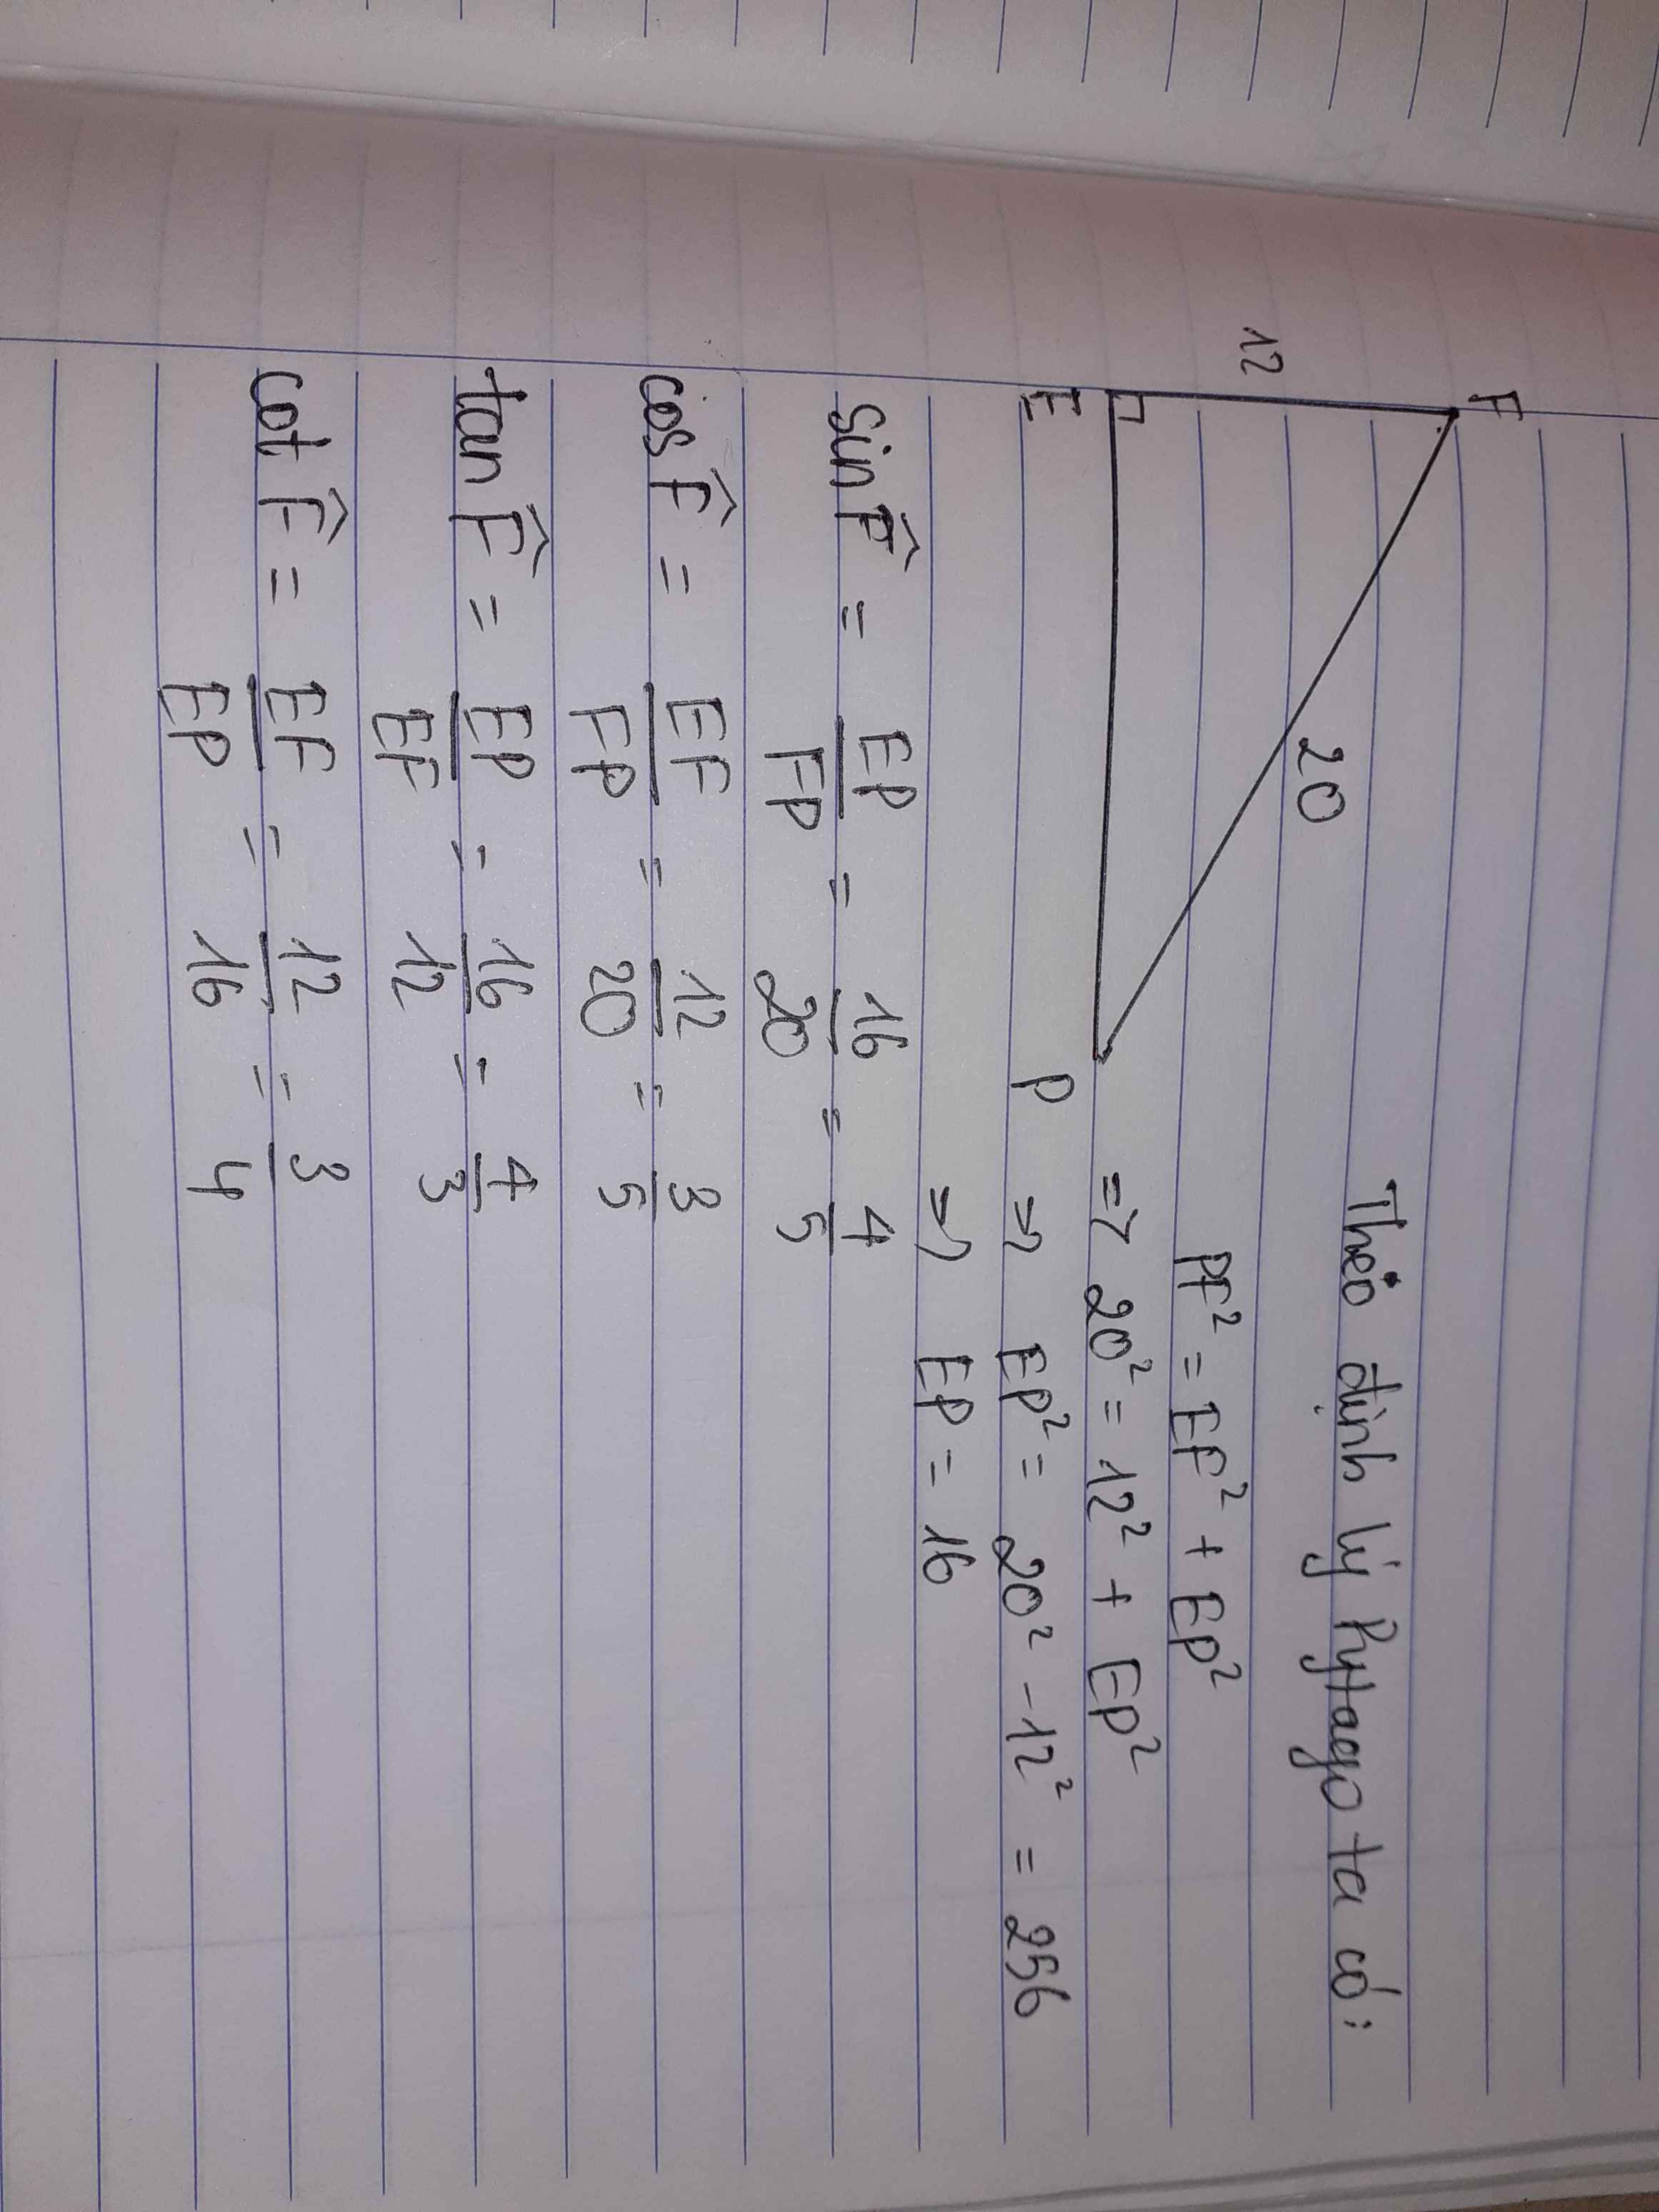 F
12
20
E
P
Theo định lý Pytago ta có:
PF² = EF² + EP²
=> 20² = 12² + EP²
=> EP² = 20² - 12² = 256
=> EP = 16
sin F̂ = EP/FP = 16/20 = 4/5
cos F̂ = EF/FP = 12/20 = 3/5
tan F̂ = EP/EF = 16/12 = 4/3
cot F̂ = EF/EP = 12/16 = 3/4